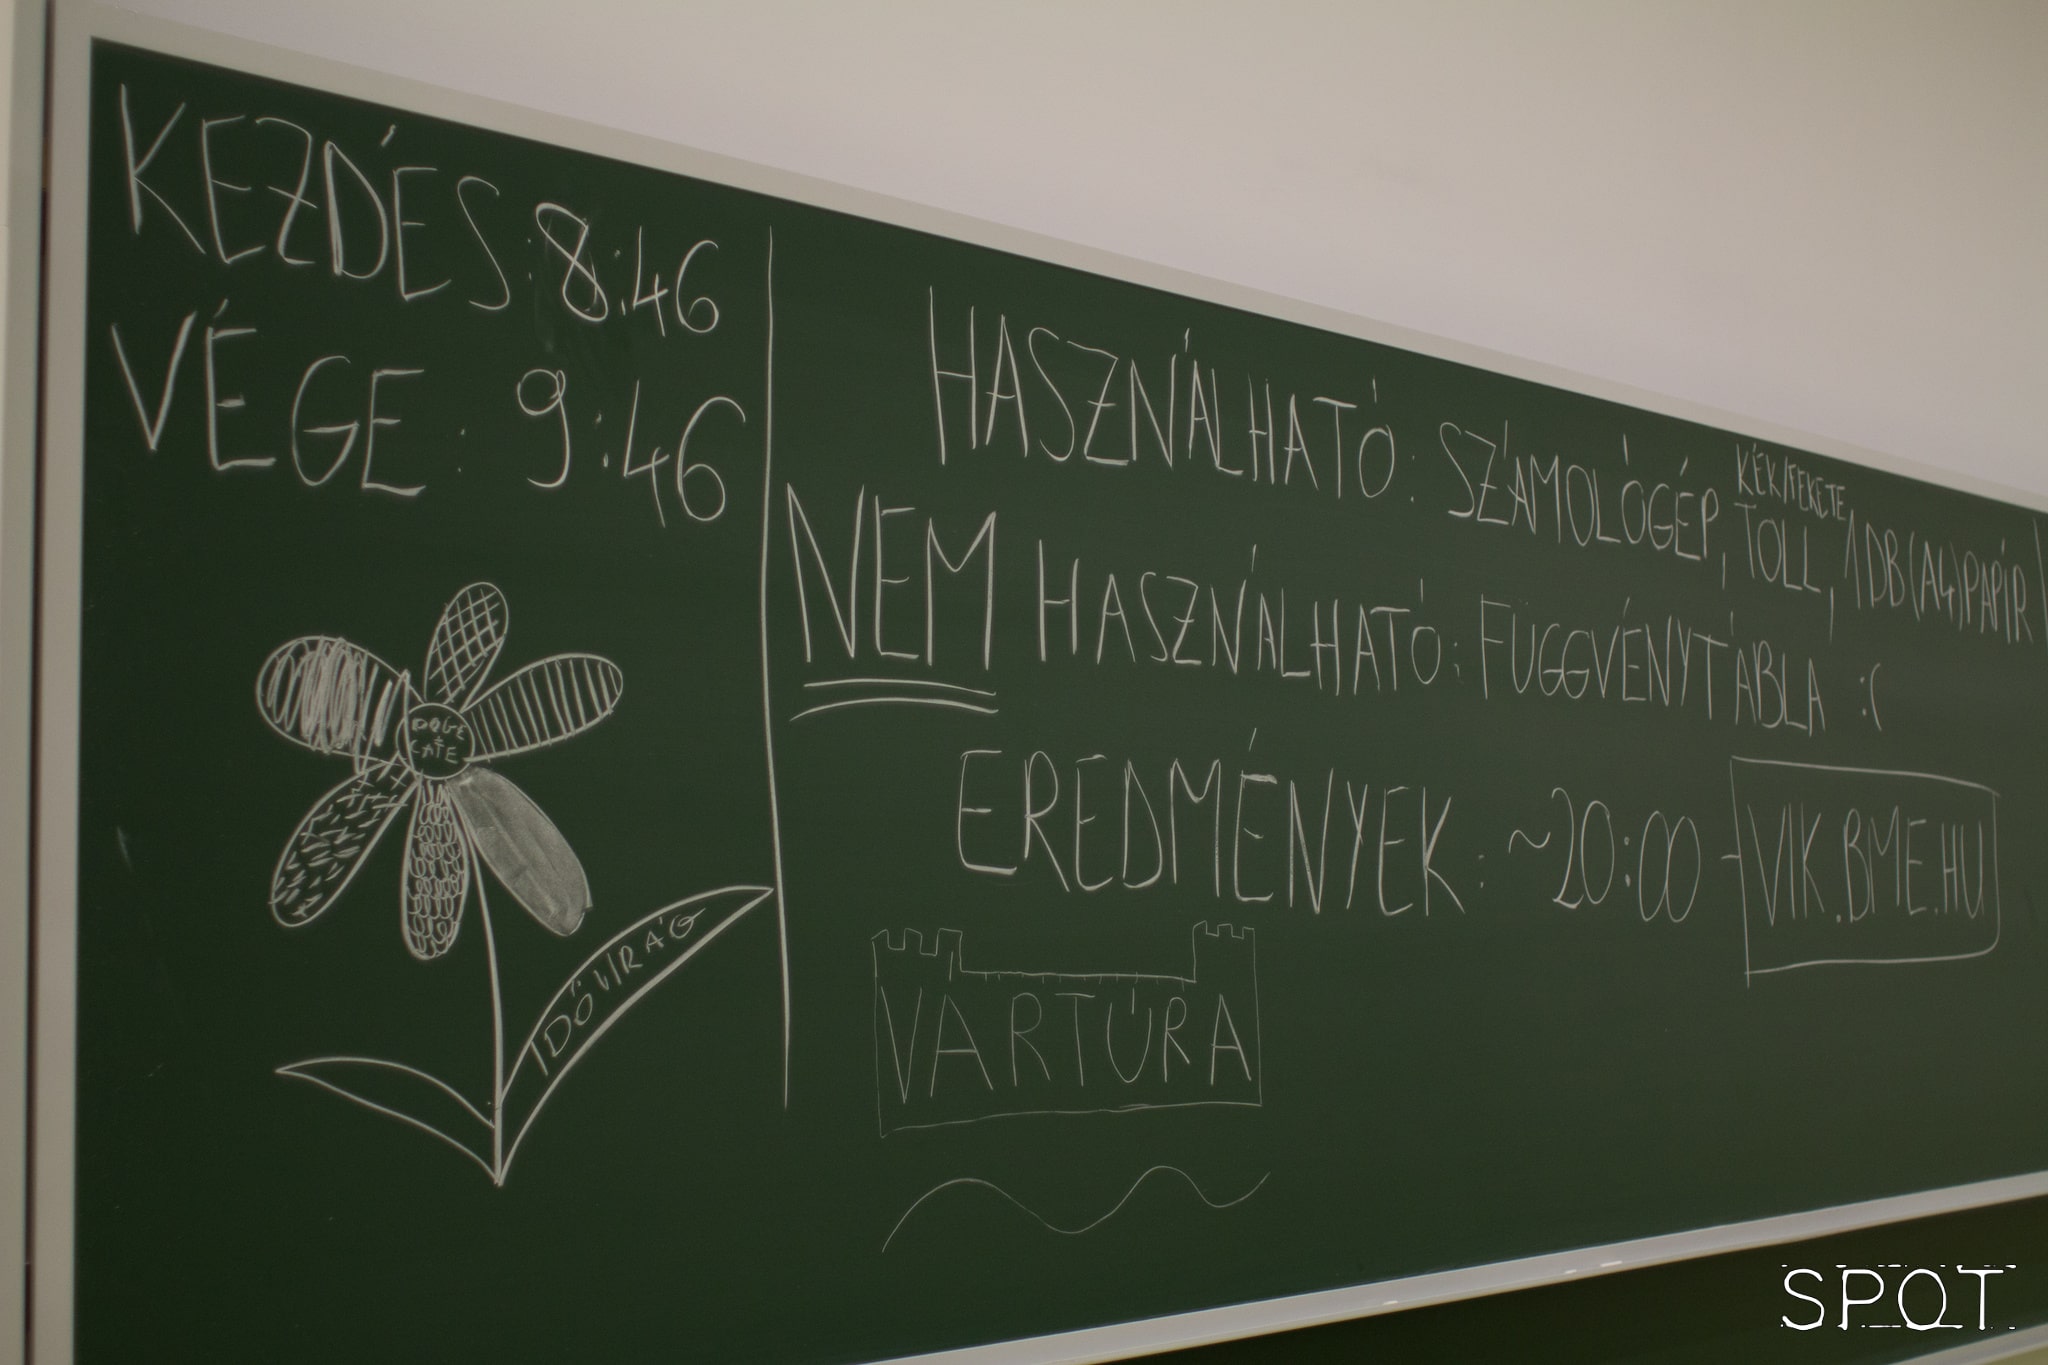 KEZDÉS: 8:46
VÉGE: 9:46
DOGE
CAFE
IDŐVIRÁG
HASZNÁLHATÓ: SZÁMOLÓGÉP, KÉK/FEKETE TOLL, 1 DB (A4) PAPÍR
NEM HASZNÁLHATÓ: FÜGGVÉNYTÁBLA :(
EREDMÉNYEK: ~20:00 - VIK.BME.HU
VÁRTÚRA
SPOT